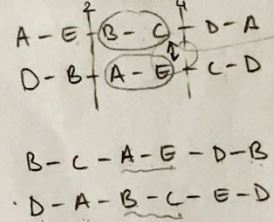 2 4
A - E - B - C - D - A
D - B - A - E - C - D
B - C - A - E - D - B
D - A - B - C - E - D